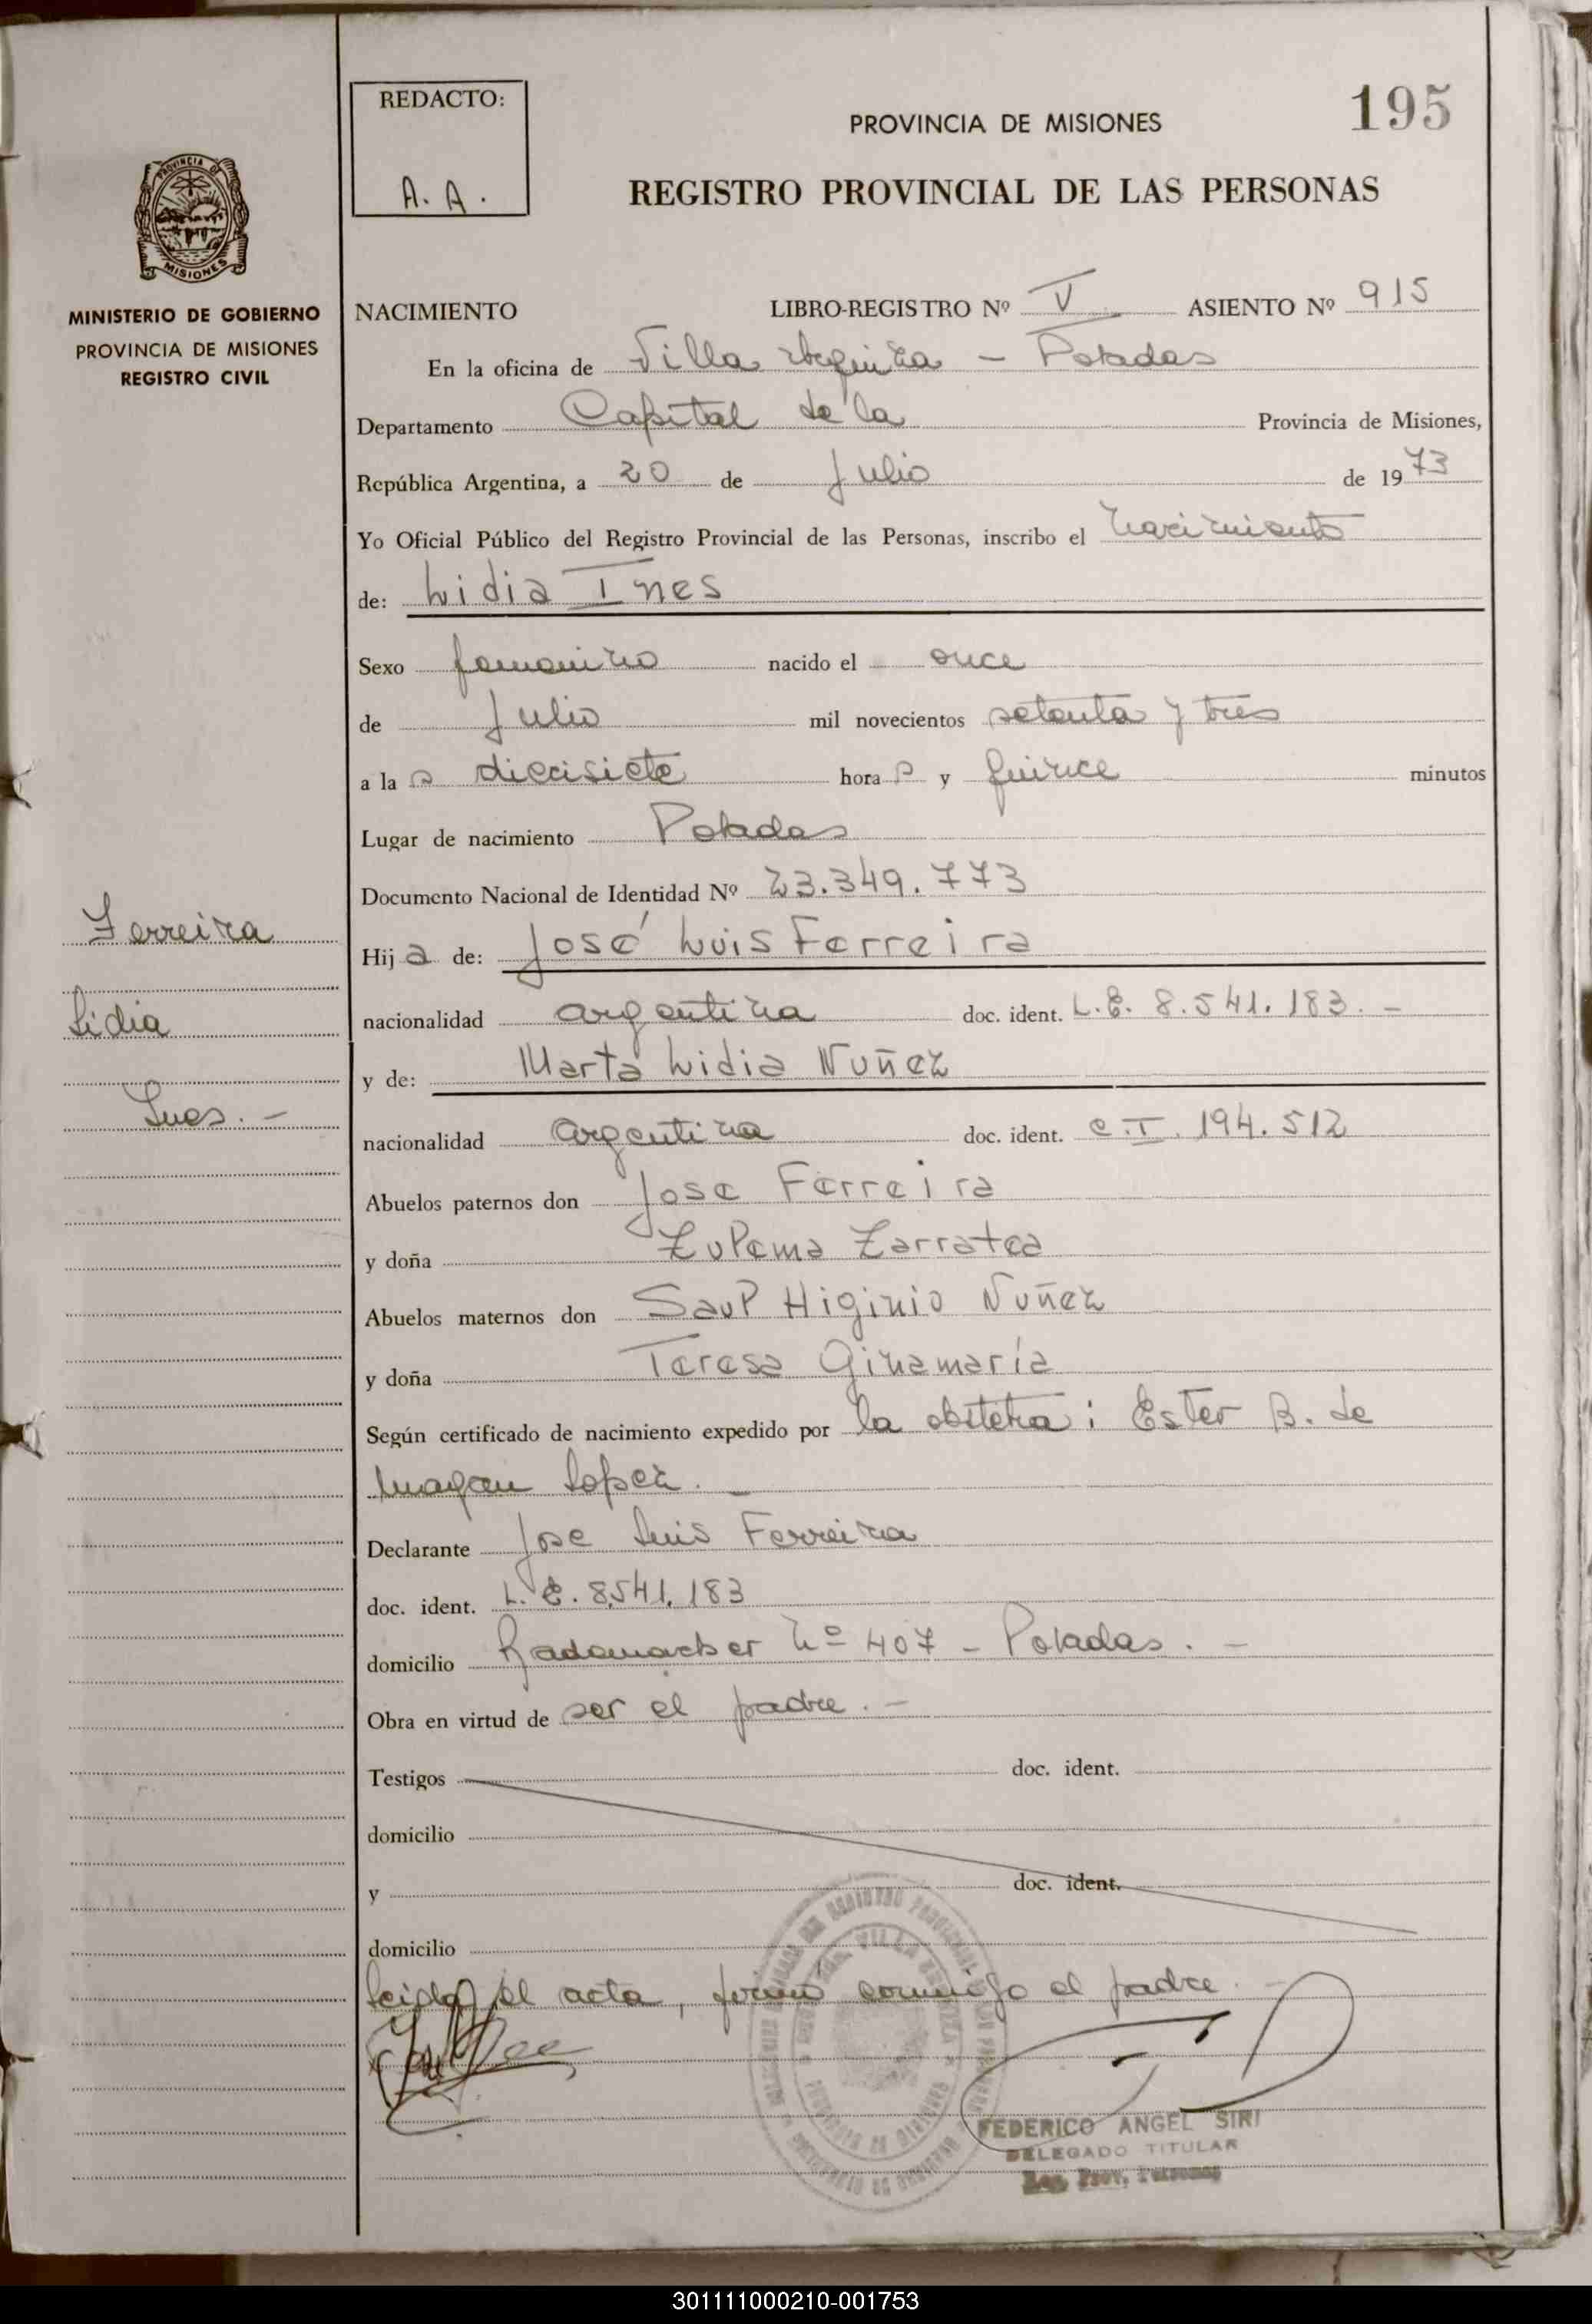 REDACTO:
A. A.
PROVINCIA DE MISIONES
195
REGISTRO PROVINCIAL DE LAS PERSONAS
PROVINCIA DE
MISIONES
MINISTERIO DE GOBIERNO
PROVINCIA DE MISIONES
REGISTRO CIVIL
NACIMIENTO LIBRO-REGISTRO Nº V ASIENTO Nº 915
En la oficina de Villa Urquiza - Posadas
Departamento Capital de la Provincia de Misiones,
República Argentina, a 20 de Julio de 1973
Yo Oficial Público del Registro Provincial de las Personas, inscribo el nacimiento
de: Lidia Ines
Sexo femenino nacido el once
de Julio mil novecientos setenta y tres
a la s diecisiete hora s y quince minutos
Lugar de nacimiento Posadas
Documento Nacional de Identidad Nº 23.349.773
Ferreira
Hij a de: José Luis Ferreira
Lidia
nacionalidad argentina doc. ident. L.E. 8.541.183. -
y de: Marta Lidia Nuñez
Ines. -
nacionalidad argentina doc. ident. C.I. 194.512
Abuelos paternos don Jose Ferreira
y doña Zulema Zarratea
Abuelos maternos don Saul Higinio Nuñez
y doña Teresa Ginamaría
Según certificado de nacimiento expedido por la obstetra: Ester B. de
Magan Lopez. -
Declarante Jose Luis Ferreira
doc. ident. L.E. 8.541.183
domicilio Rademacher Nº 407 - Posadas. -
Obra en virtud de ser el padre. -
Testigos doc. ident.
domicilio
y doc. ident.
domicilio
Leida el acta, firmó conmigo el padre. -
FEDERICO ANGEL SIRI
DELEGADO TITULAR
Reg. Prov. Personas
301111000210-001753